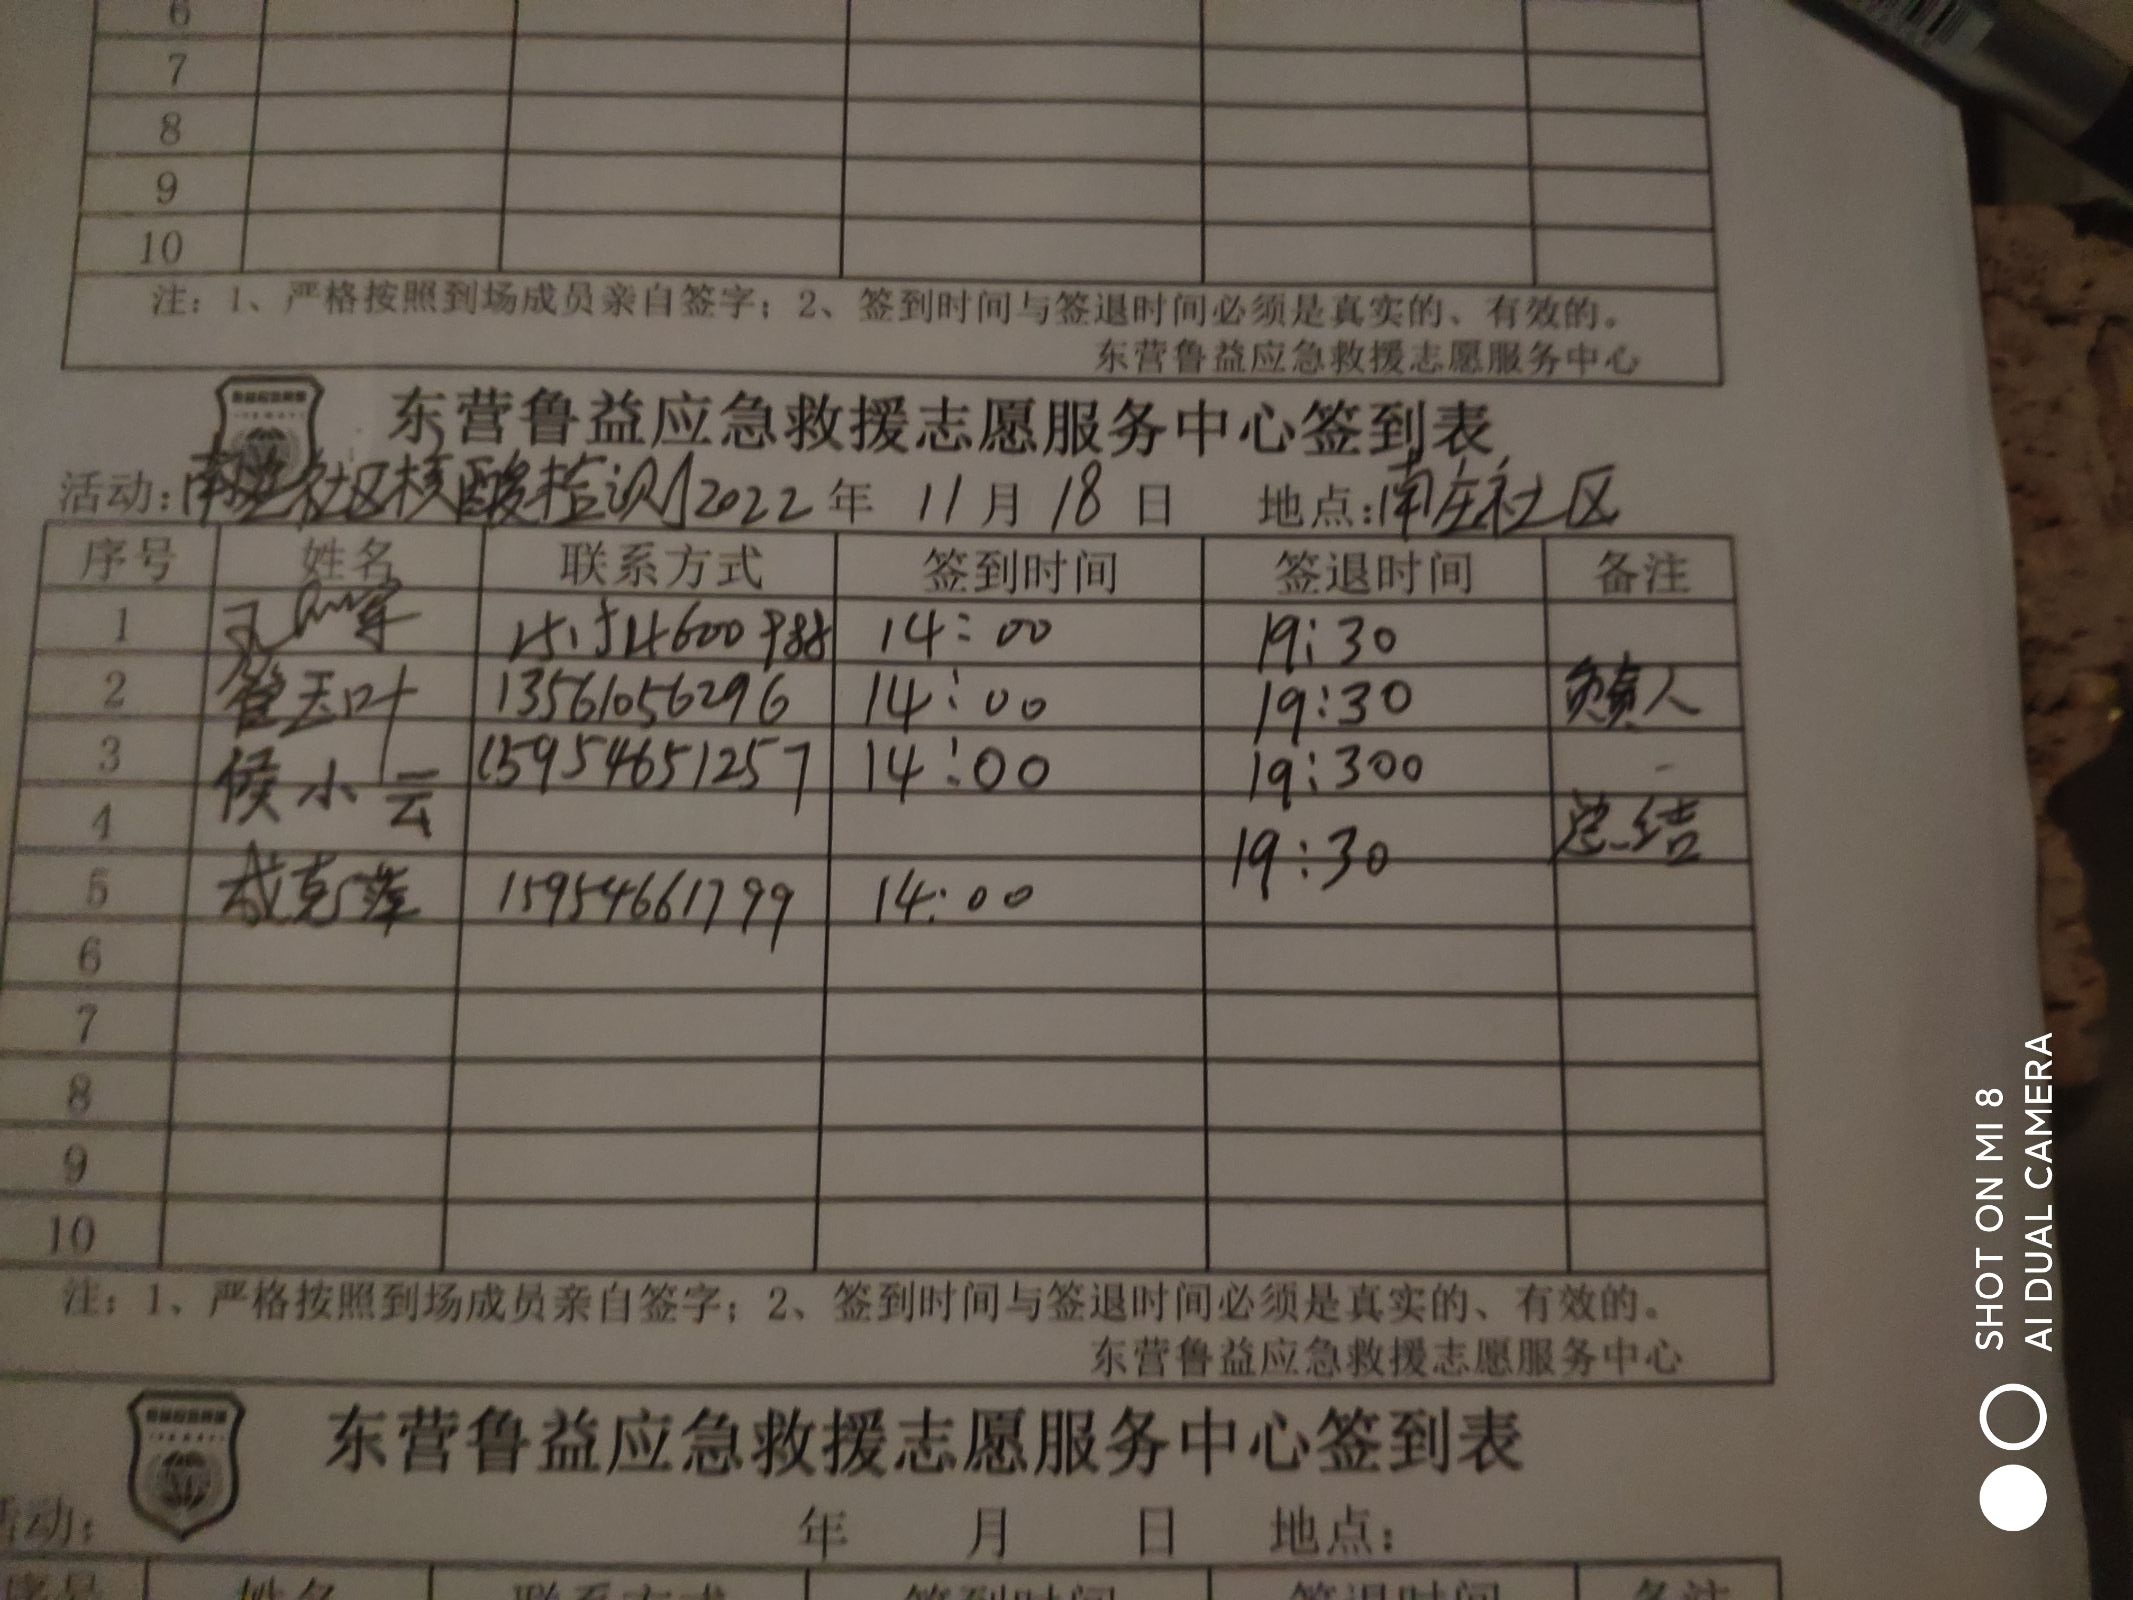 6
7
8
9
10
注：1、严格按照到场成员亲自签字；2、签到时间与签退时间必须是真实的、有效的。
东营鲁益应急救援志愿服务中心
东营鲁益应急救援志愿服务中心签到表
活动：南庄社区核酸检测 2022年 11月 18日 地点：南庄社区
序号 姓名 联系方式 签到时间 签退时间 备注
1 14：00 19：30
2 管玉叶 13561056296 14：00 19：30 负责人
3 候小云 15954651257 14：00 19：300
4 19：30 总结
5 15954661799 14：00
6
7
8
9
10
注：1、严格按照到场成员亲自签字；2、签到时间与签退时间必须是真实的、有效的。
东营鲁益应急救援志愿服务中心
东营鲁益应急救援志愿服务中心签到表
活动： 年 月 日 地点：
序号 姓名 联系方式 签到时间 签退时间 备注
SHOT ON MI 8
AI DUAL CAMERA